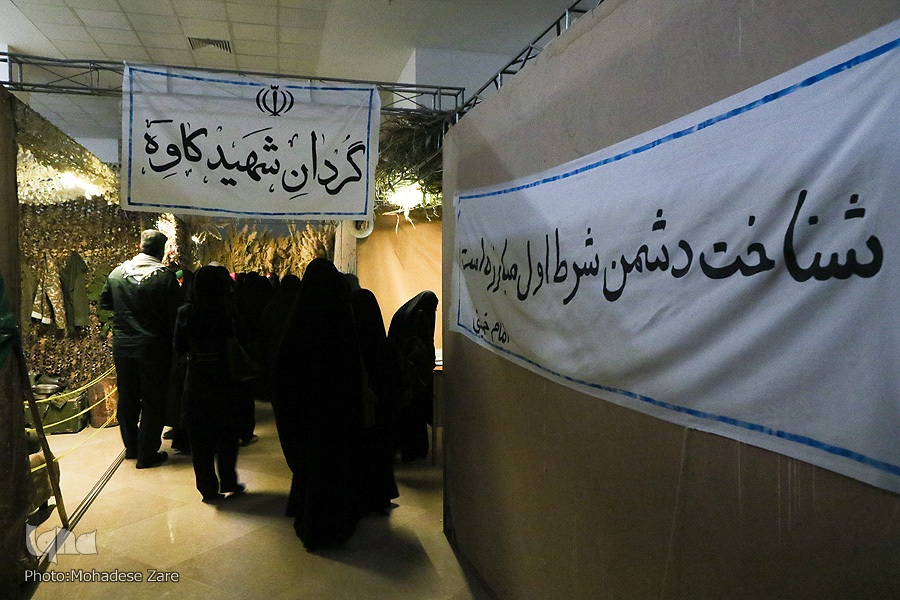 گُردانِ شهید کاوِه
شناخت دشمن شرط اول مبارزه است
امام خمینی
iqna
Photo:Mohadese Zare